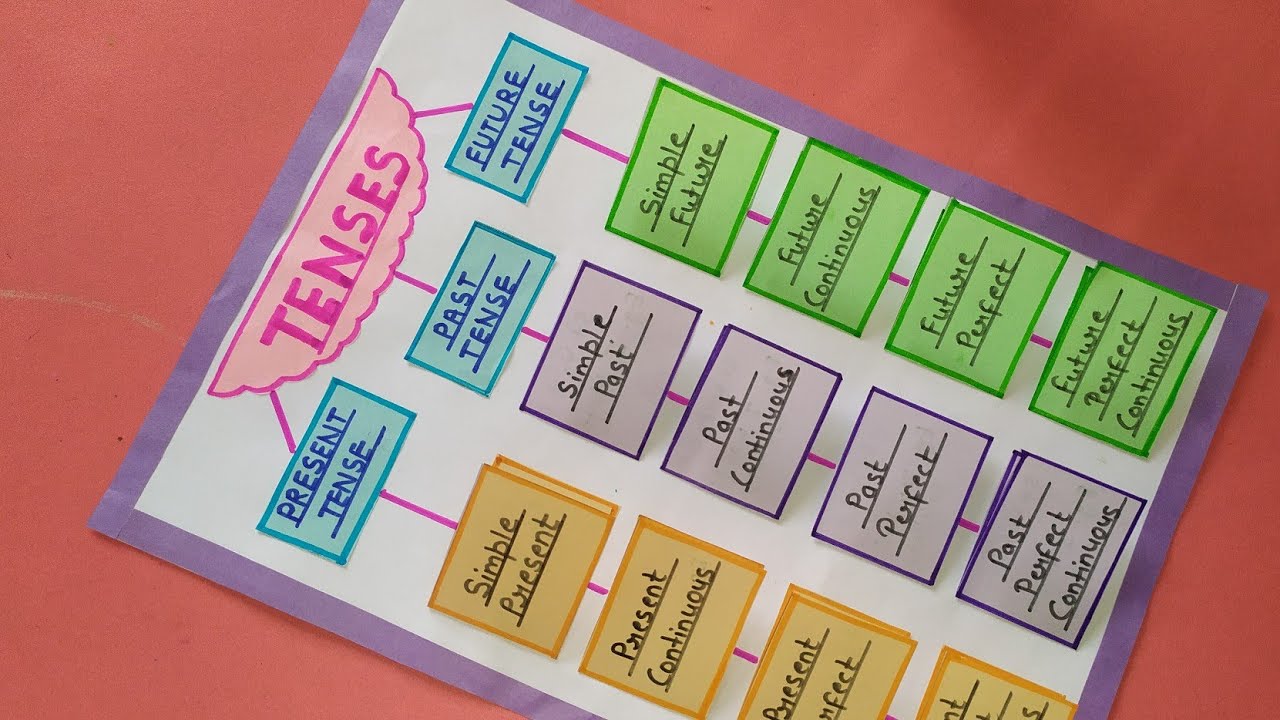 TENSES
PRESENT
TENSE
Simple
Present
Present
Continuous
Present
PAST
TENSE
Simple
Past
Past
Continuous
Past
Perfect
Past
Perfect
Continuous
FUTURE
TENSE
Simple
Future
Future
Continuous
Future
Perfect
Future
Perfect
Continuous